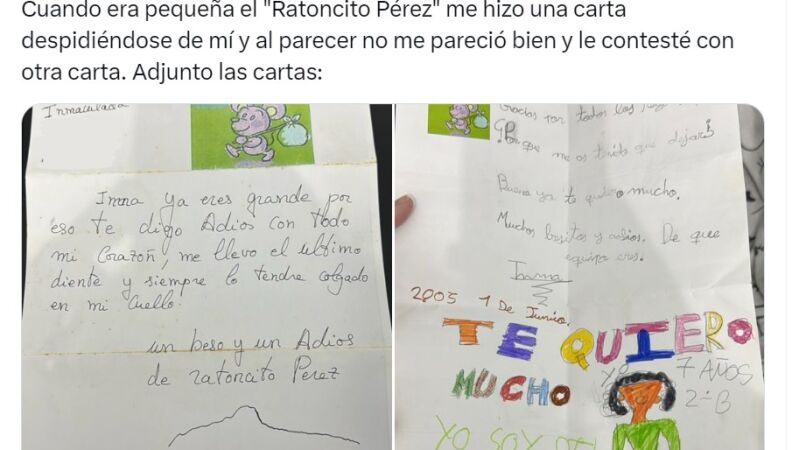 Cuando era pequeña el "Ratoncito Pérez" me hizo una carta
despidiéndose de mí y al parecer no me pareció bien y le contesté con
otra carta. Adjunto las cartas:
Inmaculada
Inma ya eres grande por
eso te digo Adios con todo
mi Corazoñ, me llevo el ultimo
diente y siempre lo tendre colgado
en mi Cuello.
un beso y un Adios
de ratoncito Perez
Gracias por todos los
que me as tenido que dejar?
Buena ya te quiero mucho.
Muchos besitos y adios. De que
equipo eres.
Inma
2005 1 De Junio.
TE QUIERO
MUCHO
YO
7 AÑOS
2º B
YO SOY